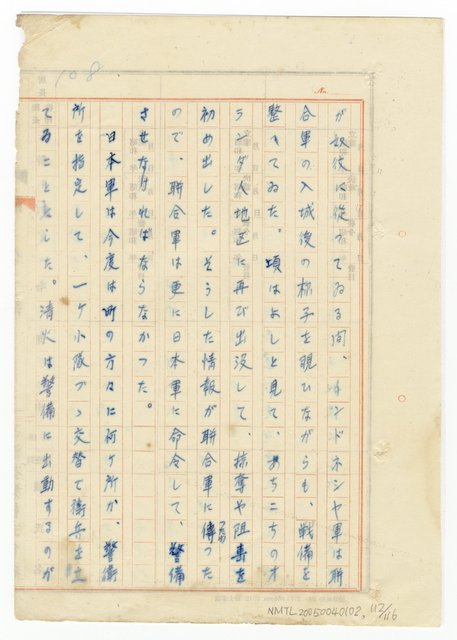 108
No.
が奴役に従つてゐる間、インドネシヤ軍は聯
合軍の入城後の様子を覗ひながらも、戦備を
整へてゐた。頃はよしと見て、あちこちのオ
ランダ人地区に再び出没して、掠奪や阻害を
初め出した。そうした情報が聯合軍に傳つた
つたわ
ので、聯合軍は更に日本軍に命令して、警備
させなければならなかつた。
日本軍は今度は町の方々に何ケ所か、警衛
所を指定して、一ケ小隊づつ交替で衛兵を立
てることゝした。清火は警備に出動するのが
NMTL20050040102, 112/116